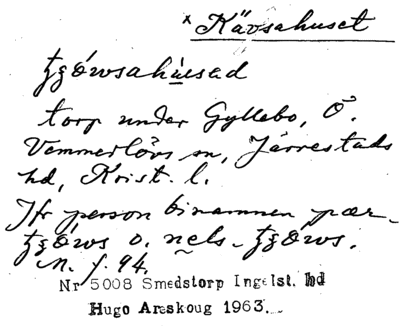 x Kävsahuset
torp under Gyllebo, Ö.
Vemmerlövs sn, Järrestads
hd, Krist. l.
Jfr person binamnen pær-
o. nels-
m. f. 94.
Nr 5008 Smedstorp Ingelst. hd
Hugo Areskoug 1963.